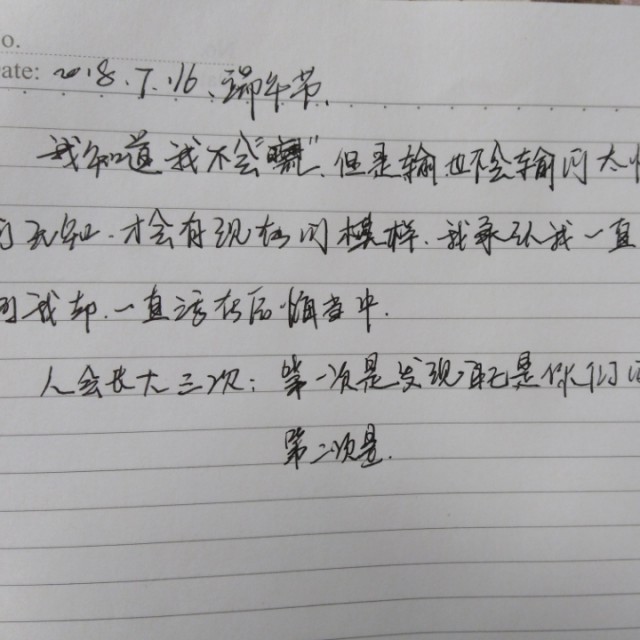 o.
ate: 2018.7.16、端午节、
我知道我不会“”,但是输也不会输的太
的无知.才会有现在的模样.我承认我一直
我却.一直活在后悔当中.
人会长大三次:第一次是发现是你们
第二次是.